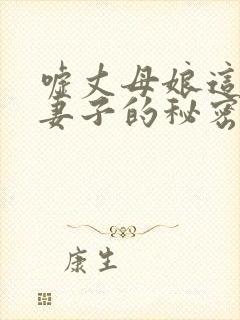 嘘丈母娘這
妻子的秘密
康生